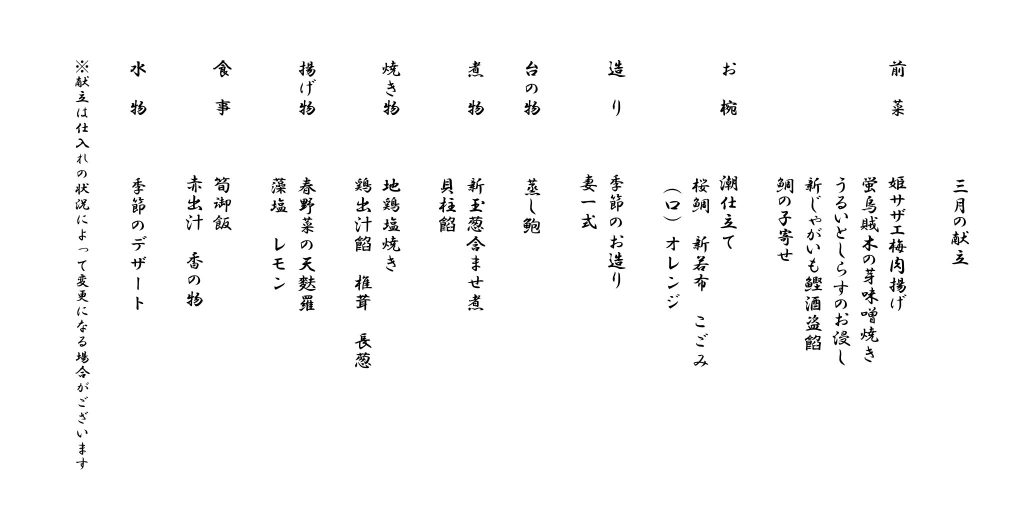 三月の献立
前菜
姫サザエ梅肉揚げ
蛍烏賊木の芽味噌焼き
うるいとしらすのお浸し
新じゃがいも鰹酒盗餡
鯛の子寄せ
お椀
潮仕立て
桜鯛 新若布 こごみ
（口）オレンジ
造り
季節のお造り
妻一式
台の物
蒸し鮑
煮物
新玉葱含ませ煮
貝柱餡
焼き物
地鶏塩焼き
鶏出汁餡 椎茸 長葱
揚げ物
春野菜の天麩羅
藻塩 レモン
食事
筍御飯
赤出汁 香の物
水物
季節のデザート
※献立は仕入れの状況によって変更になる場合がございます